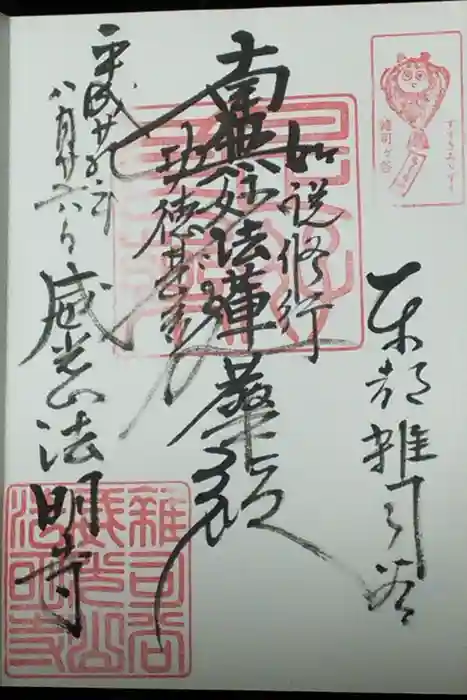 すすきみみずく
雑司ヶ谷
東都雑司谷
如説修行
南無妙法蓮華経
功徳甚多
平成廿九年
八月廿六日
威光山法明寺
雜司谷
威光山
法明寺